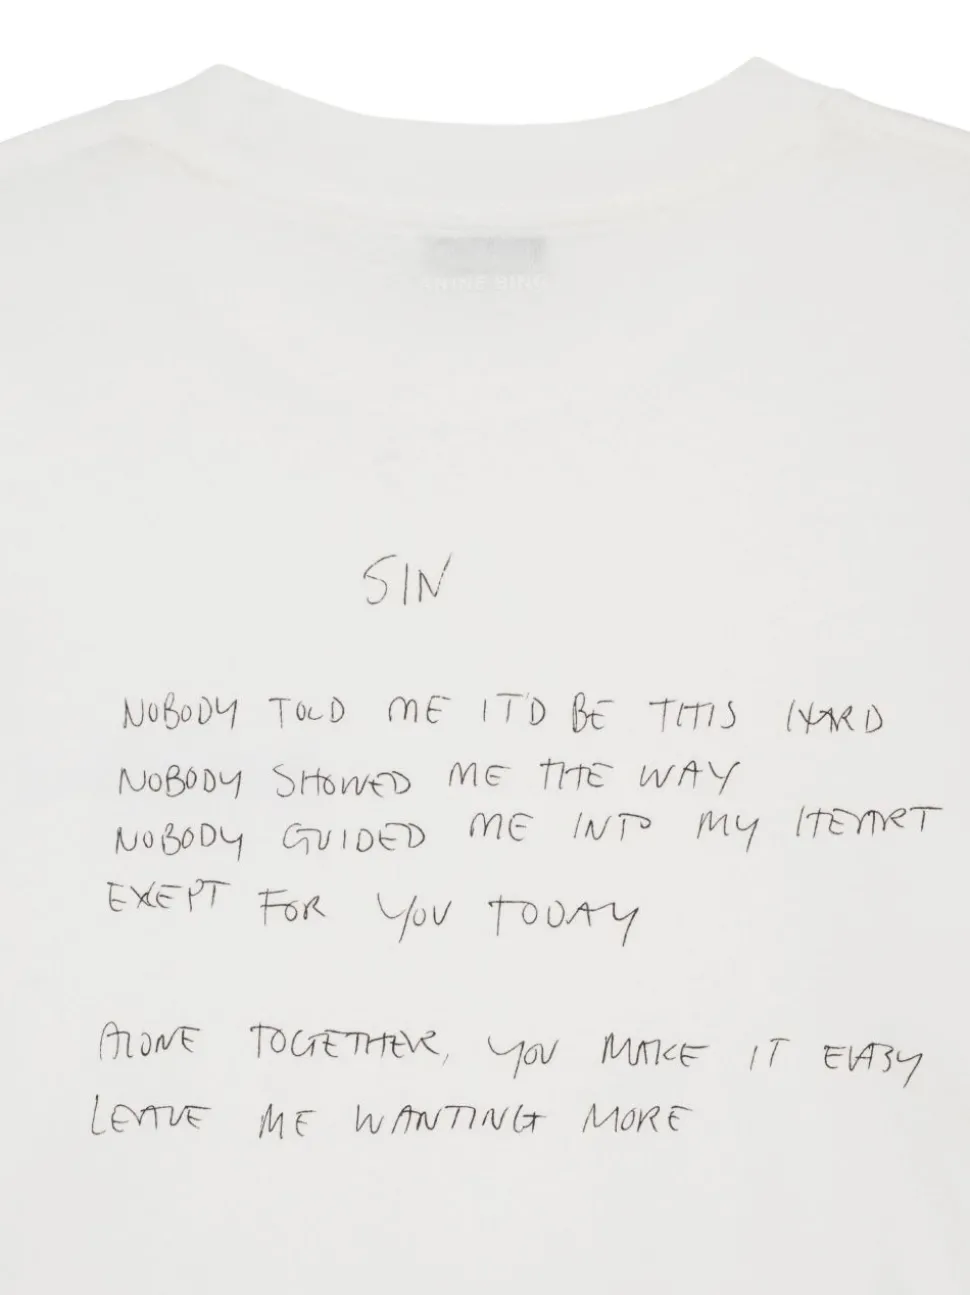 ANINE BING
SIN
NOBODY TOLD ME IT'D BE THIS HARD
NOBODY SHOWED ME THE WAY
NOBODY GUIDED ME INTO MY HEART
EXEPT FOR YOU TODAY
ALONE TOGETHER, YOU MAKE IT EASY
LEAVE ME WANTING MORE